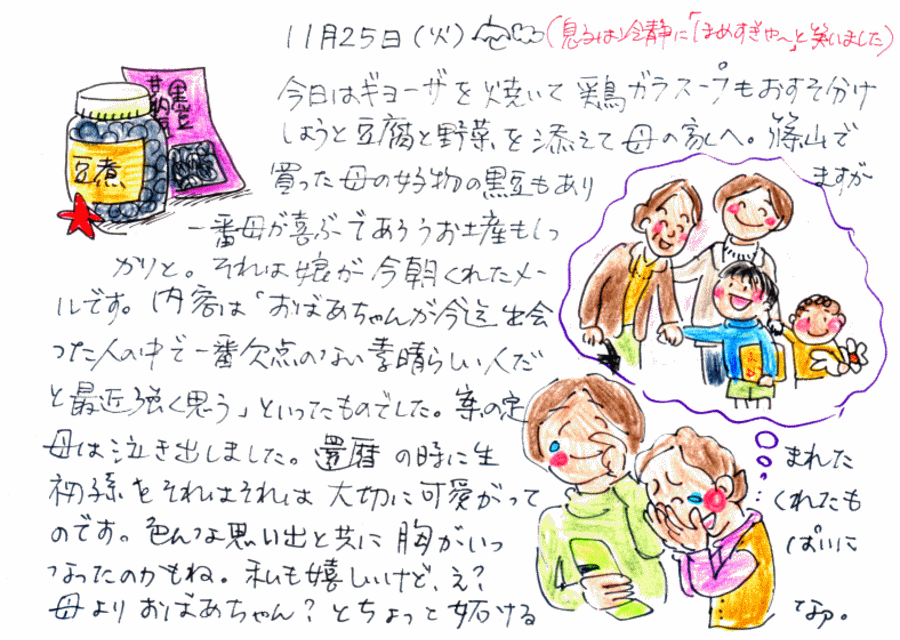 11月25日(火)
(息子は冷静に「ほめすぎや~」と笑いました)
今日はギョーザを焼いて鶏ガラスープもおすそ分け
しようと豆腐と野菜を添えて母の家へ。篠山で
買った母の好物の黒豆もあり ますが
一番母が喜ぶであろうお土産もしっ
かりと。それは娘が今朝くれたメー
ルです。内容は「おばあちゃんが今迄出会
った人の中で一番欠点のない素晴らしい人だ
と最近強く思う」といったものでした。案の定
母は泣き出しました。還暦の時に生 まれた
初孫をそれはそれは大切に可愛がって くれたも
のです。色んな思い出と共に胸がいっ ぱいに
なったのかもね。私も嬉しいけど、え?
母よりおばあちゃん?とちょっと妬ける なァ。
黒豆
甘納豆
豆煮